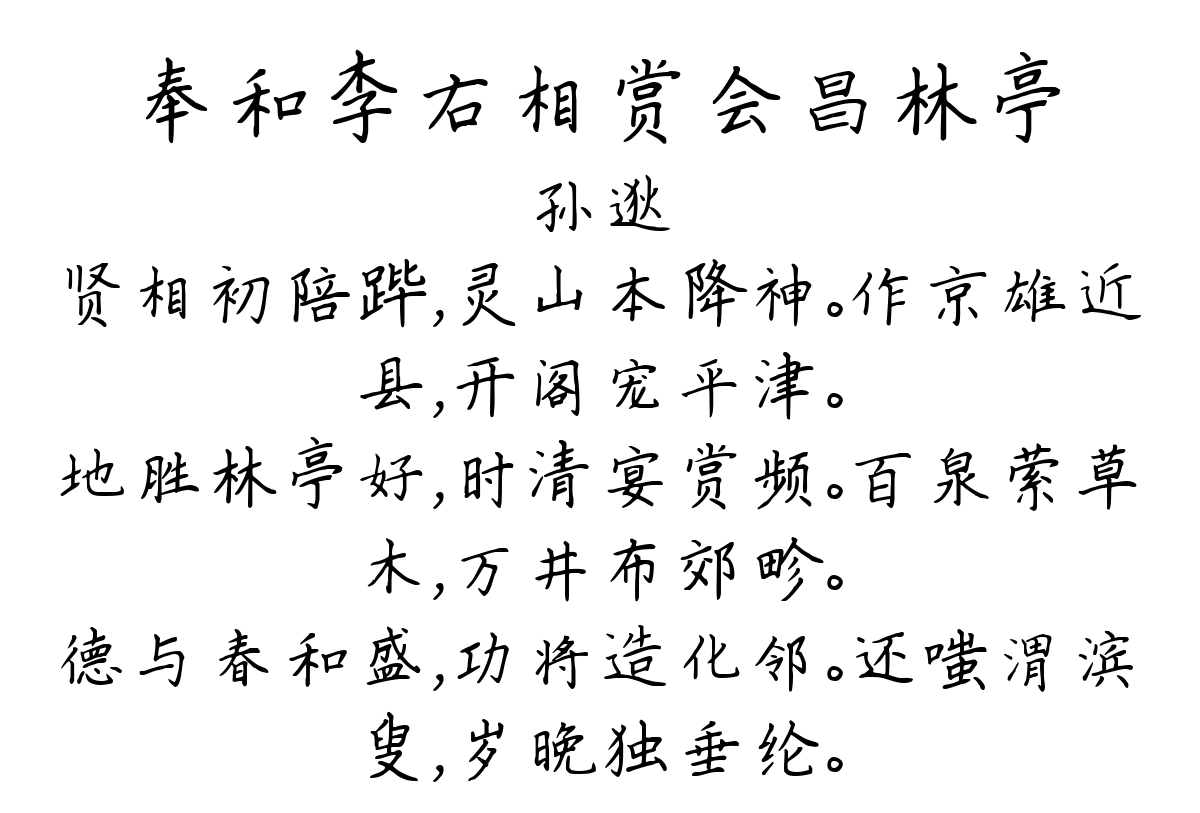 奉和李右相赏会昌林亭
孙逖
贤相初陪跸,灵山本降神。作京雄近
县,开阁宠平津。
地胜林亭好,时清宴赏频。百泉萦草
木,万井布郊畛。
德与春和盛,功将造化邻。还嗤渭滨
叟,岁晚独垂纶。